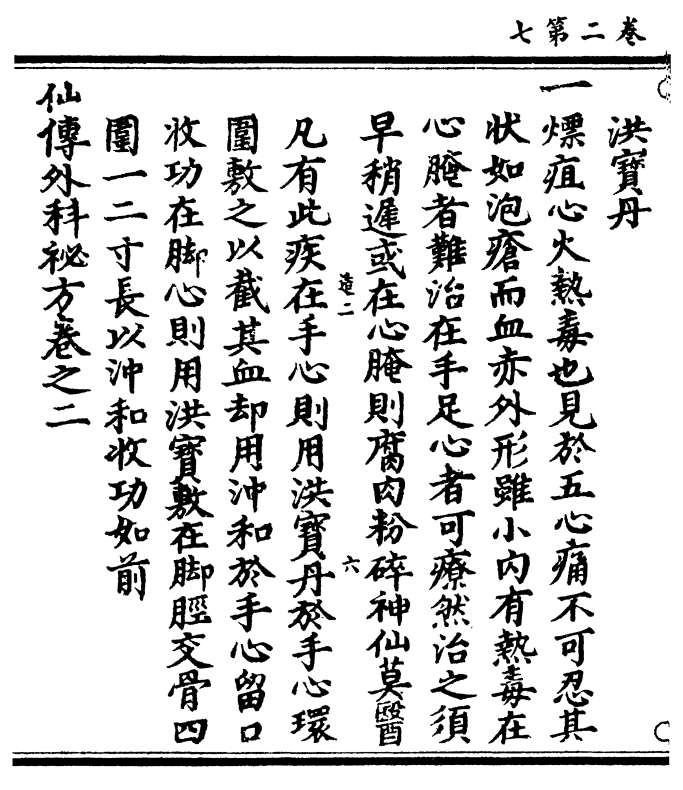 卷二第七
洪寶丹
一
熛疽心火熱毒也見於五心痛不可忍其
狀如泡瘡而血赤外形雖小內有熱毒在
心腌者難治在手足心者可療然治之須
早稍遲或在心腌則腐肉粉碎神仙莫醫
造二
六
凡有此疾在手心則用洪寶丹於手心環
圍敷之以截其血却用沖和於手心留口
收功在脚心則用洪寶敷在脚脛交骨四
圍一二寸長以沖和收功如前
仙傳外科祕方卷之二